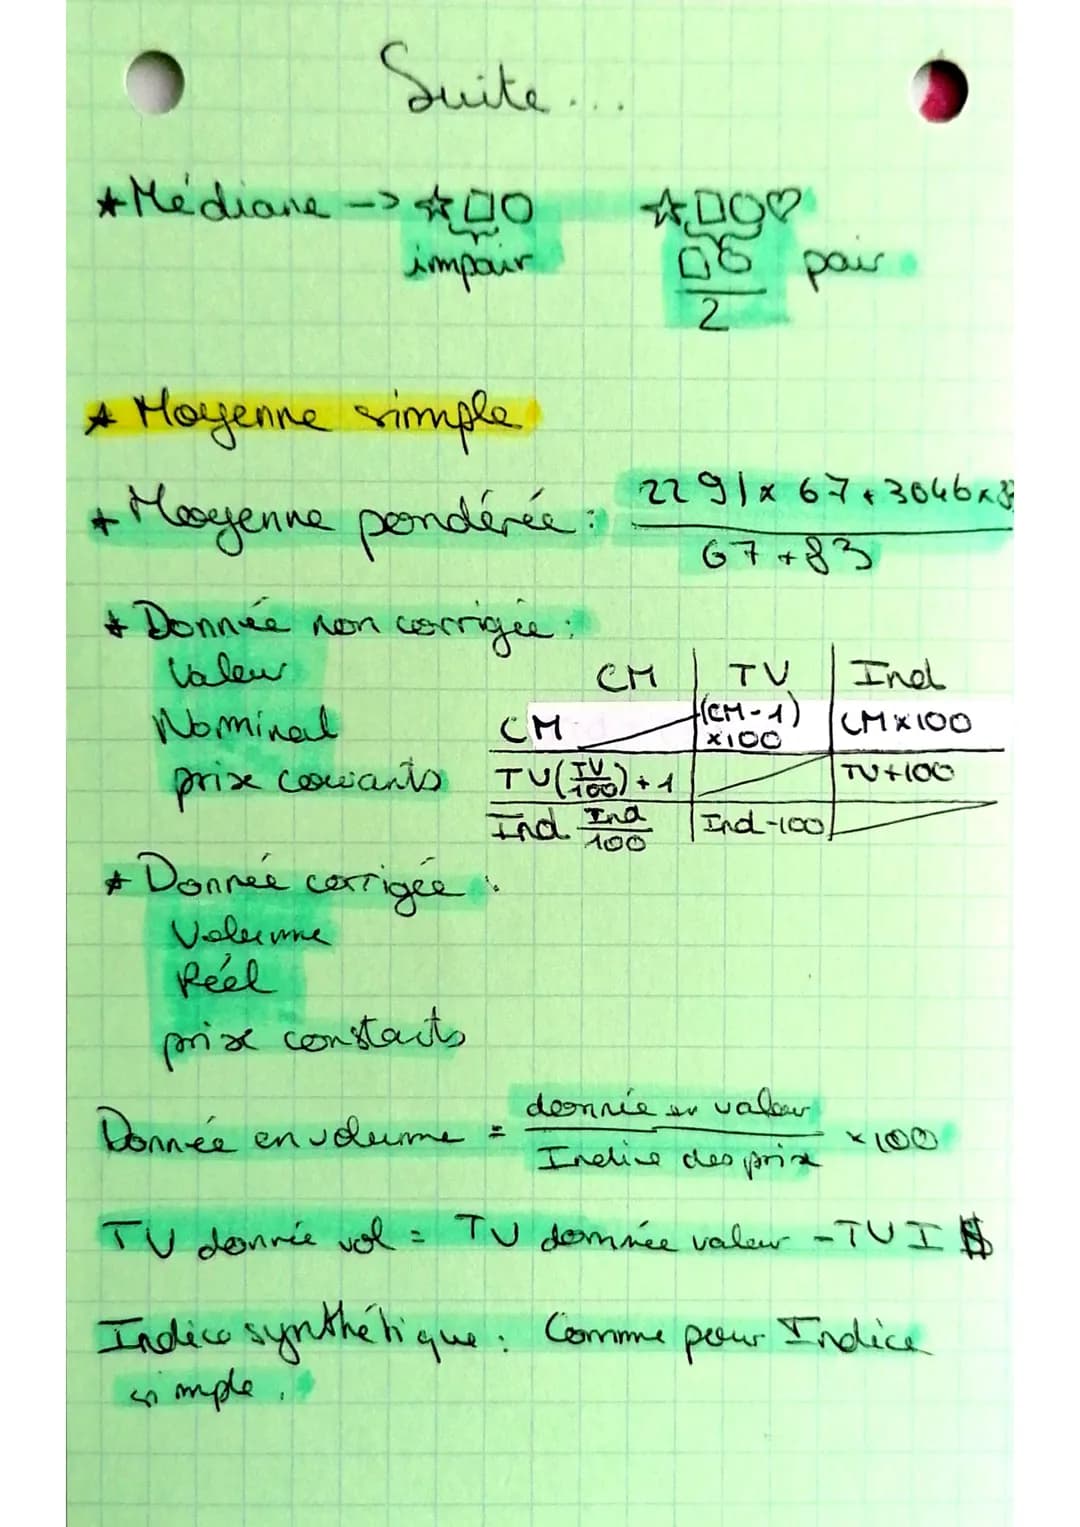 Suite...
*Médiane -> ☆□○ ☆□○♡
impair □○ pair
2
* Moyenne simple
+ Moyenne pondérée : 2291 x 67 + 3046 x 8
67 + 83
* Donnée non corrigée :
Valeur CM TV Ind
Nominal CM (CM-1) x100 CM x 100
prix courants TV (TV/100) + 1 TV+100
Ind. Ind/100 Ind-100
* Donnée corrigée :
Volume
Réel
prix constants
Donnée en volume = donnée en valeur / Indice des prix x 100
TV donnée vol = TV donnée valeur - TV I $
Indice synthétique : Comme pour Indice
simple.